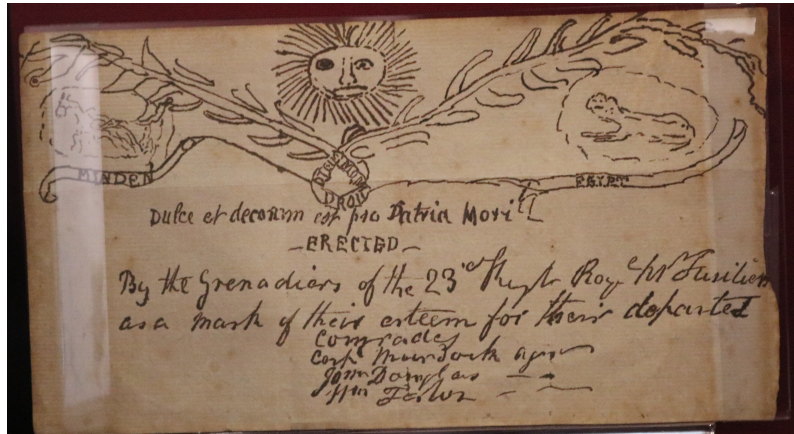 MINDEN
DIEU ET MON
DROIT
EGYPT
Dulce et decorum est pro Patria Mori
-ERECTED-
By the Grenadiers of the 23rd Regt Roy Wh Fusiliers
as a mark of their esteem for their departed
Comrades
Corp Murdock
John Douglas
Wm